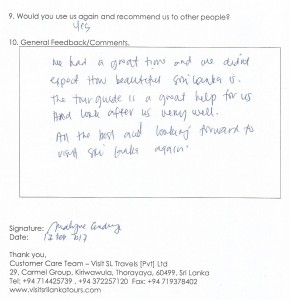 9. Would you use us again and recommend us to other people?
Yes
10. General Feedback/Comments.
We had a great time and we didn't
expect How beautiful Sri Lanka is.
The tour guide is a great help for us
And look after us very well.
All the best and looking forward to
visit Sri Lanka again.
Signature:
Date:
Thank you,
Customer Care Team – Visit SL Travels [Pvt] Ltd
29, Carmel Group, Kiriwawula, Thorayaya, 60499, Sri Lanka
Tel: +94 714425739 , +94 372257120 Fax: +94 719378402
www.visitsrilankatours.com